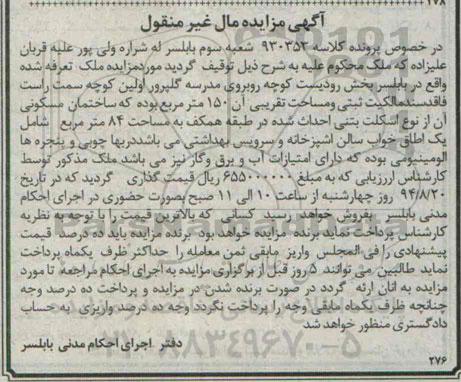 ۱۷۸
آگهی مزایده مال غیر منقول
در خصوص پرونده کلاسه ۹۳۰۳۵۲ شعبه سوم بابلسر له شراره ولی پور علیه قربان
علیزاده که ملک محکوم علیه به شرح ذیل توقیف گردید موردمزایده ملک تعرفه شده
واقع در بابلسر بخش رودبست کوچه روبروی مدرسه گلپرور اولین کوچه سمت راست
فاقدسندمالکیت ثبتی ومساحت تقریبی آن ۱۵۰ متر مربع بوده که ساختمان مسکونی
آن از نوع اسکلت بتنی احداث شده در طبقه همکف به مساحت ۸۴ متر مربع شامل
یک اطاق خواب سالن اشپزخانه و سرویس بهداشتی می باشددربها چوبی و پنجره ها
الومینیومی بوده که دارای امتیازات آب و برق وگاز نیز می باشد ملک مذکور توسط
کارشناس ارزیابی که به مبلغ ۶۵۵۰۰۰۰۰۰ ریال قیمت گذاری گردید که در تاریخ
۹۴/۸/۲۰ روز چهارشنبه از ساعت ۱۰ الی ۱۱ صبح بصورت حضوری در اجرای احکام
مدنی بابلسر بفروش خواهد رسید کسانی که بالاترین قیمت را با توجه به نظریه
کارشناس پرداخت نماید برنده مزایده خواهد بود برنده مزایده باید ده درصد قیمت
پیشنهادی را فی المجلس واریز مابقی ثمن معامله را حداکثر ظرف یکماه پرداخت
نماید طالبین می توانند ۵ روز قبل از برگزاری مزایده به اجرای احکام مراجعه تا مورد
مزایده به انان ارئه گردد در صورت برنده شدن در مزایده و پرداخت ده درصد وجه
چنانچه ظرف یکماه مابقی وجه را پرداخت نگردد وجه ده درصد واریزی به حساب
دادگستری منظور خواهد شد
دفتر اجرای احکام مدنی بابلسر
۲۷۶
۰۲۱-۸۸۳۴۹۶۷۰-۵